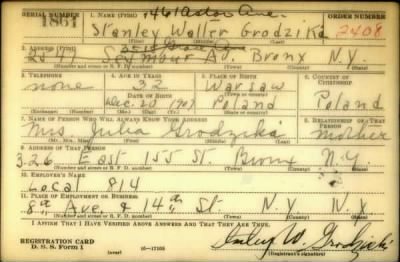 SERIAL NUMBER 1. NAME (Print) 1461 Astor Ave. ORDER NUMBER
1861 Stanley Walter Grodzika 2408
(First) (Middle) (Last)
2. ADDRESS (Print)
2517 Seymour Av. Bronx N.Y.
(Number and street or R. F. D. number) (Town) (County) (State)
3. TELEPHONE 4. AGE IN YEARS 5. PLACE OF BIRTH 6. COUNTRY OF CITIZENSHIP
none 32 Warsaw
DATE OF BIRTH (Town or county)
Dec. 20 1907 Poland Poland
(Exchange) (Number) (Mo.) (Day) (Yr.) (State or country)
7. NAME OF PERSON WHO WILL ALWAYS KNOW YOUR ADDRESS 8. RELATIONSHIP OF THAT PERSON
Mrs. Julia Grodzika mother
(Mr., Mrs., Miss) (First) (Middle) (Last)
9. ADDRESS OF THAT PERSON
326 East 155 St. Bronx N.Y.
(Number and street or R. F. D. number) (Town) (County) (State)
10. EMPLOYER'S NAME
Local 814
11. PLACE OF EMPLOYMENT OR BUSINESS
8th Ave. & 14th St. N.Y. N.Y.
(Number and street or R. F. D. number) (Town) (County) (State)
I AFFIRM THAT I HAVE VERIFIED ABOVE ANSWERS AND THAT THEY ARE TRUE.
REGISTRATION CARD
D. S. S. Form 1 (over) 16—17105 Stanley W. Grodzicki
(Registrant's signature)